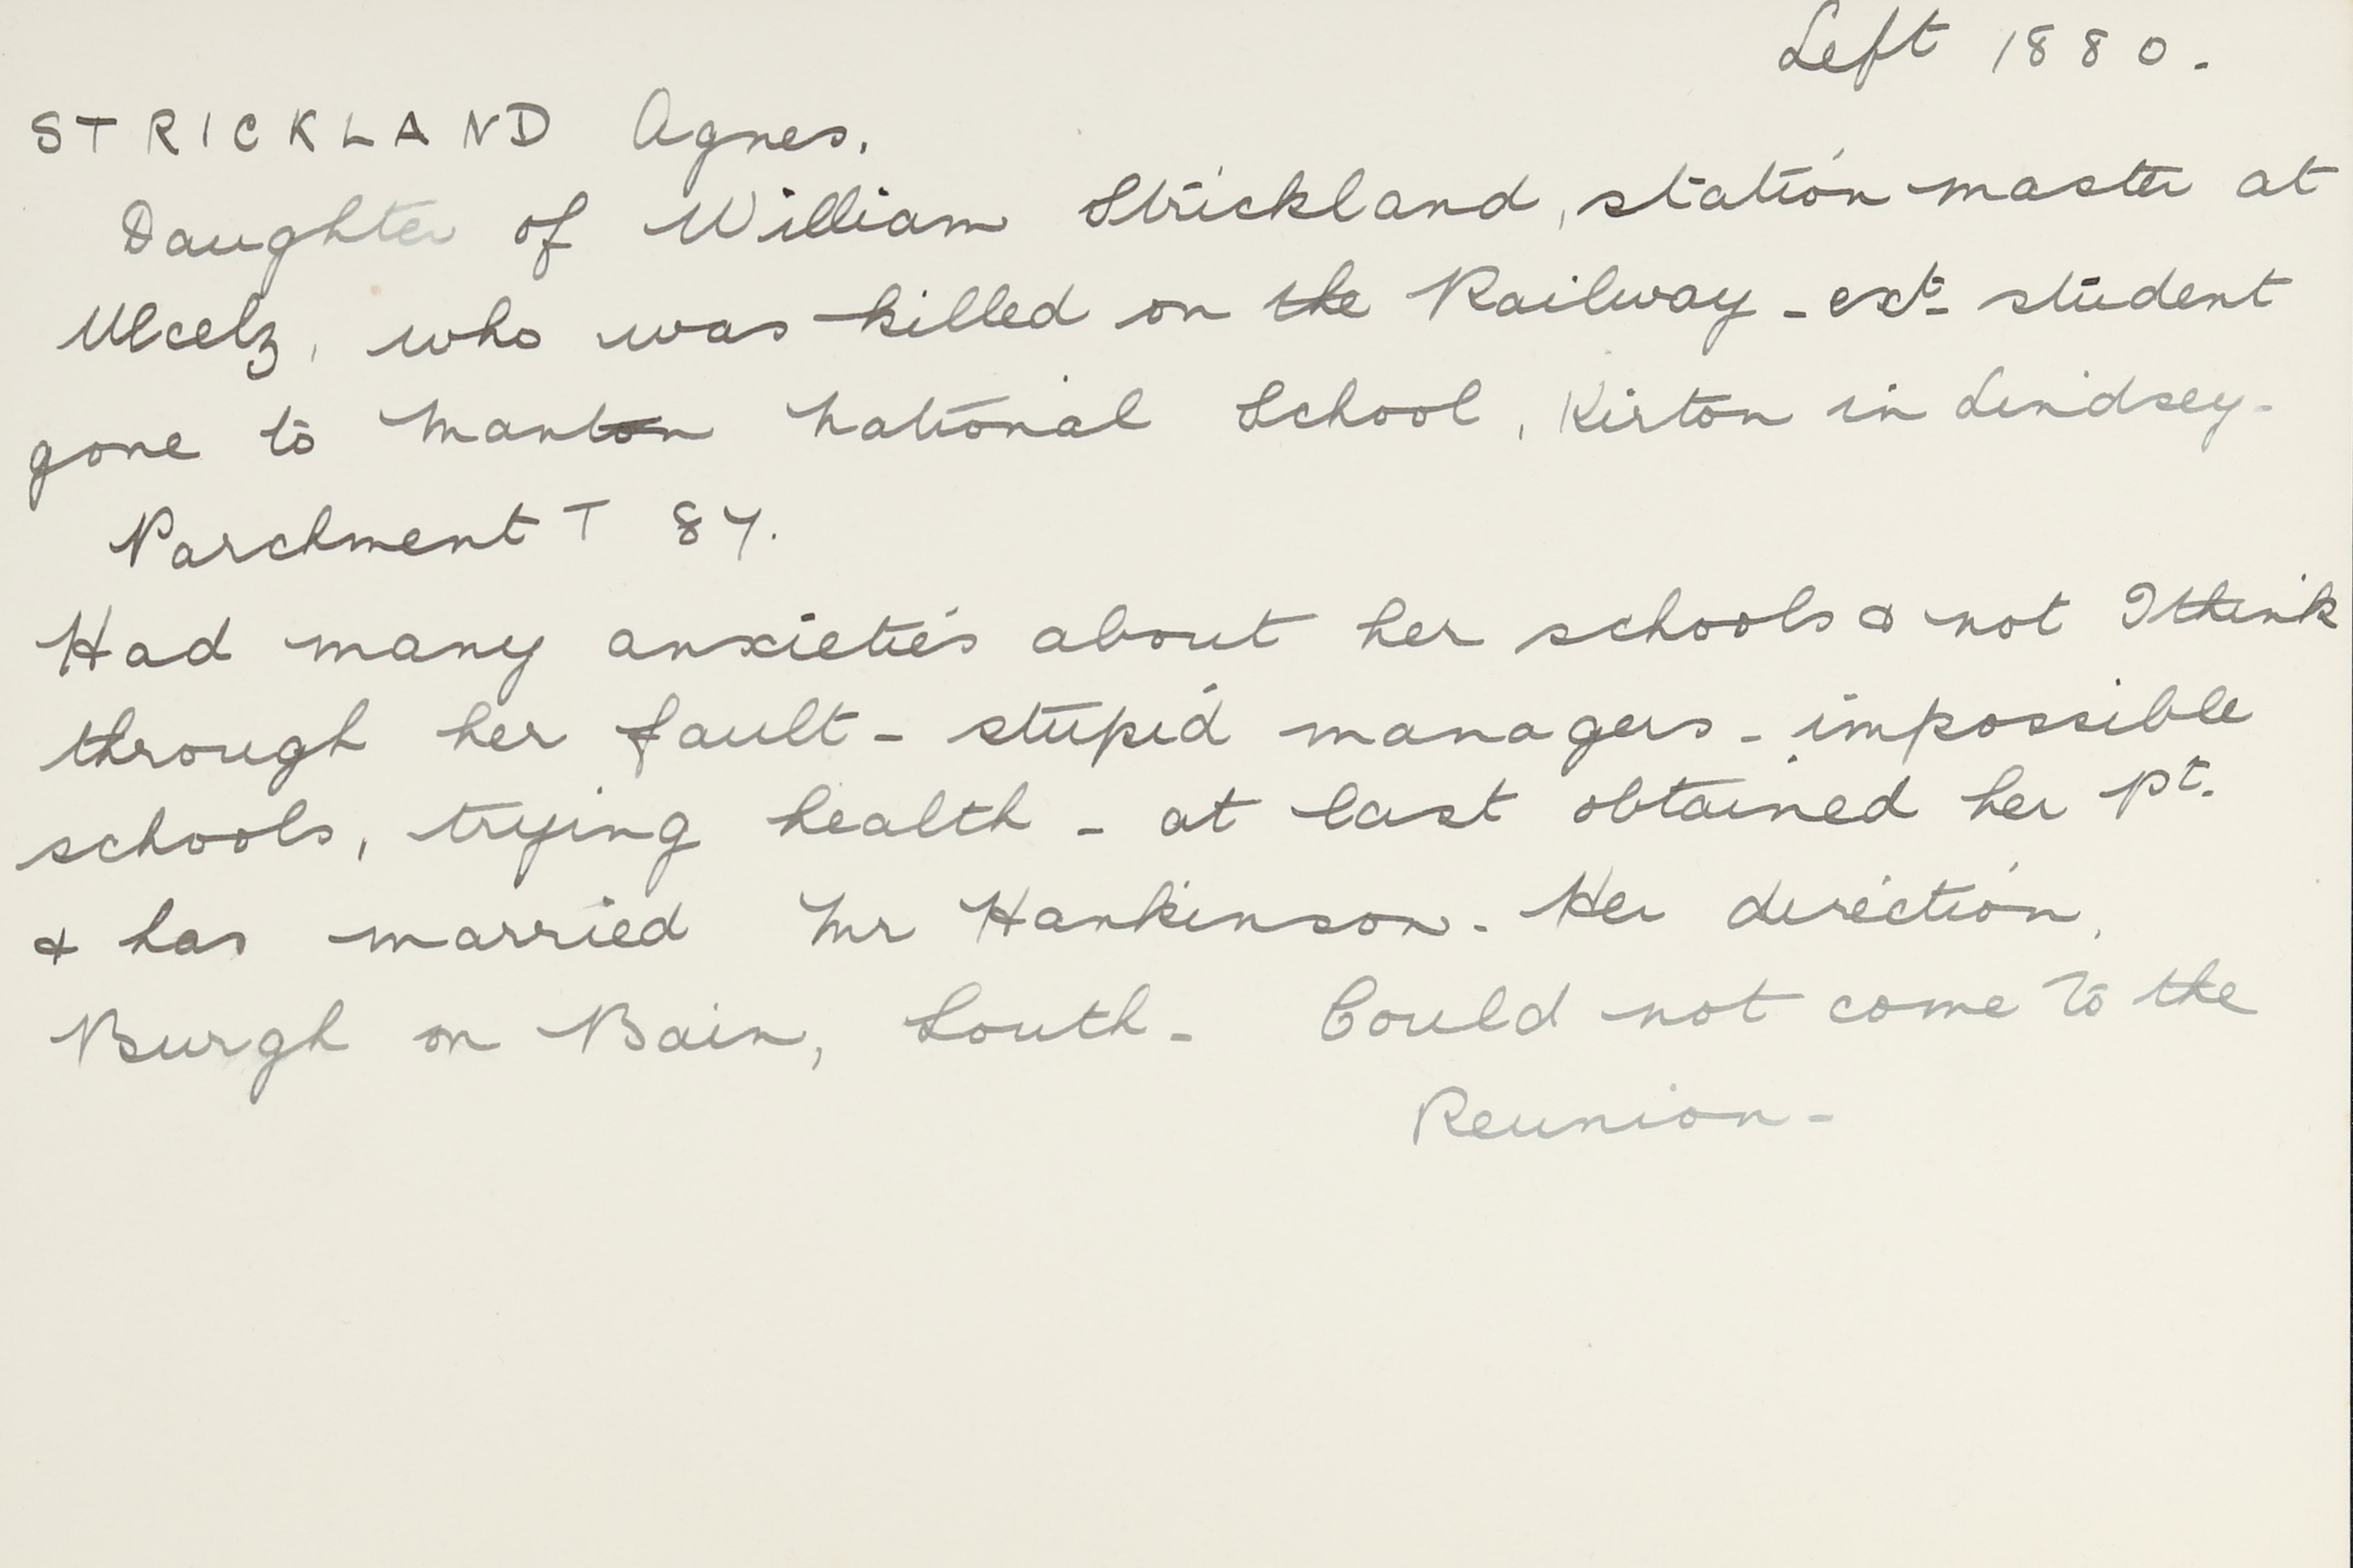 Left 1880.
STRICKLAND Agnes.
Daughter of William Strickland, station master at
Ulcelz, who was killed on the Railway - ext. student
gone to Manton National School, Kirton in Lindsey.
Parchment T 84.
Had many anxieties about her schools & not I think
through her fault - stupid managers - impossible
schools, trying health - at last obtained her pt.
& has married Mr Hankinson. Her direction,
Burgh on Bain, Louth - Could not come to the
Reunion -